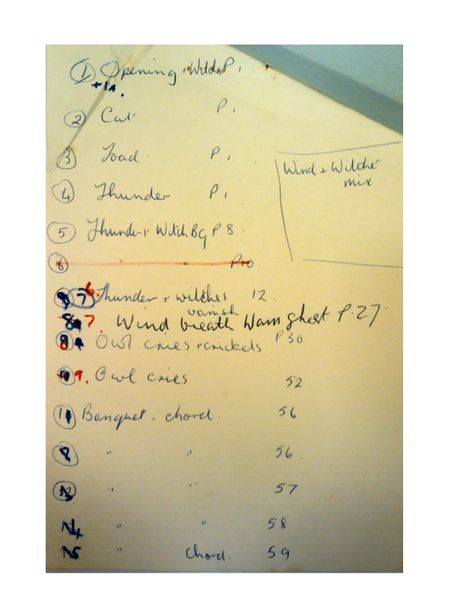 1 Opening + Witches P 1
+1A.
2 Cat P 1
3 Toad. P 1
4 Thunder P 1
Wind + Witches
mix
5 Thunder + Witch BG P 8
6 " " P10
7 6. Thunder + witches 12
vanish
8 7. Wind breath Warm ghost P. 27
8 Owl cries + crickets P 30
9. Owl cries 52
11 Banquet. chord. 56
" " 56.
" " 57
" " 58
15 " chord. 59